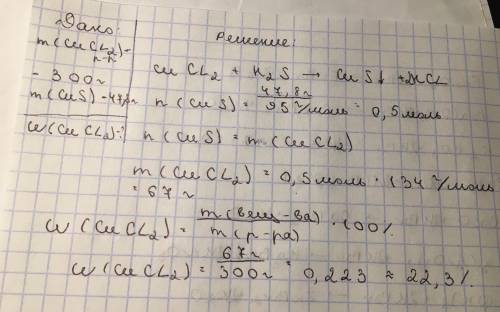 Дано:
m(CuCL2)-
р-р
- 300г
m(CuS)-47,8г
w(CuCL2)-?
Решение:
CuCL2 + H2S → CuS↓ + 2HCL
n(CuS) = 47,8г / 95 г/моль = 0,5 моль
n(CuS) = m(CuCL2)
m(CuCL2) = 0,5 моль · 134 г/моль
= 67г
w(CuCL2) = m(вещ-ва) / m(р-ра) · 100%
w(CuCL2) = 67г / 300г = 0,223 ≈ 22,3%.